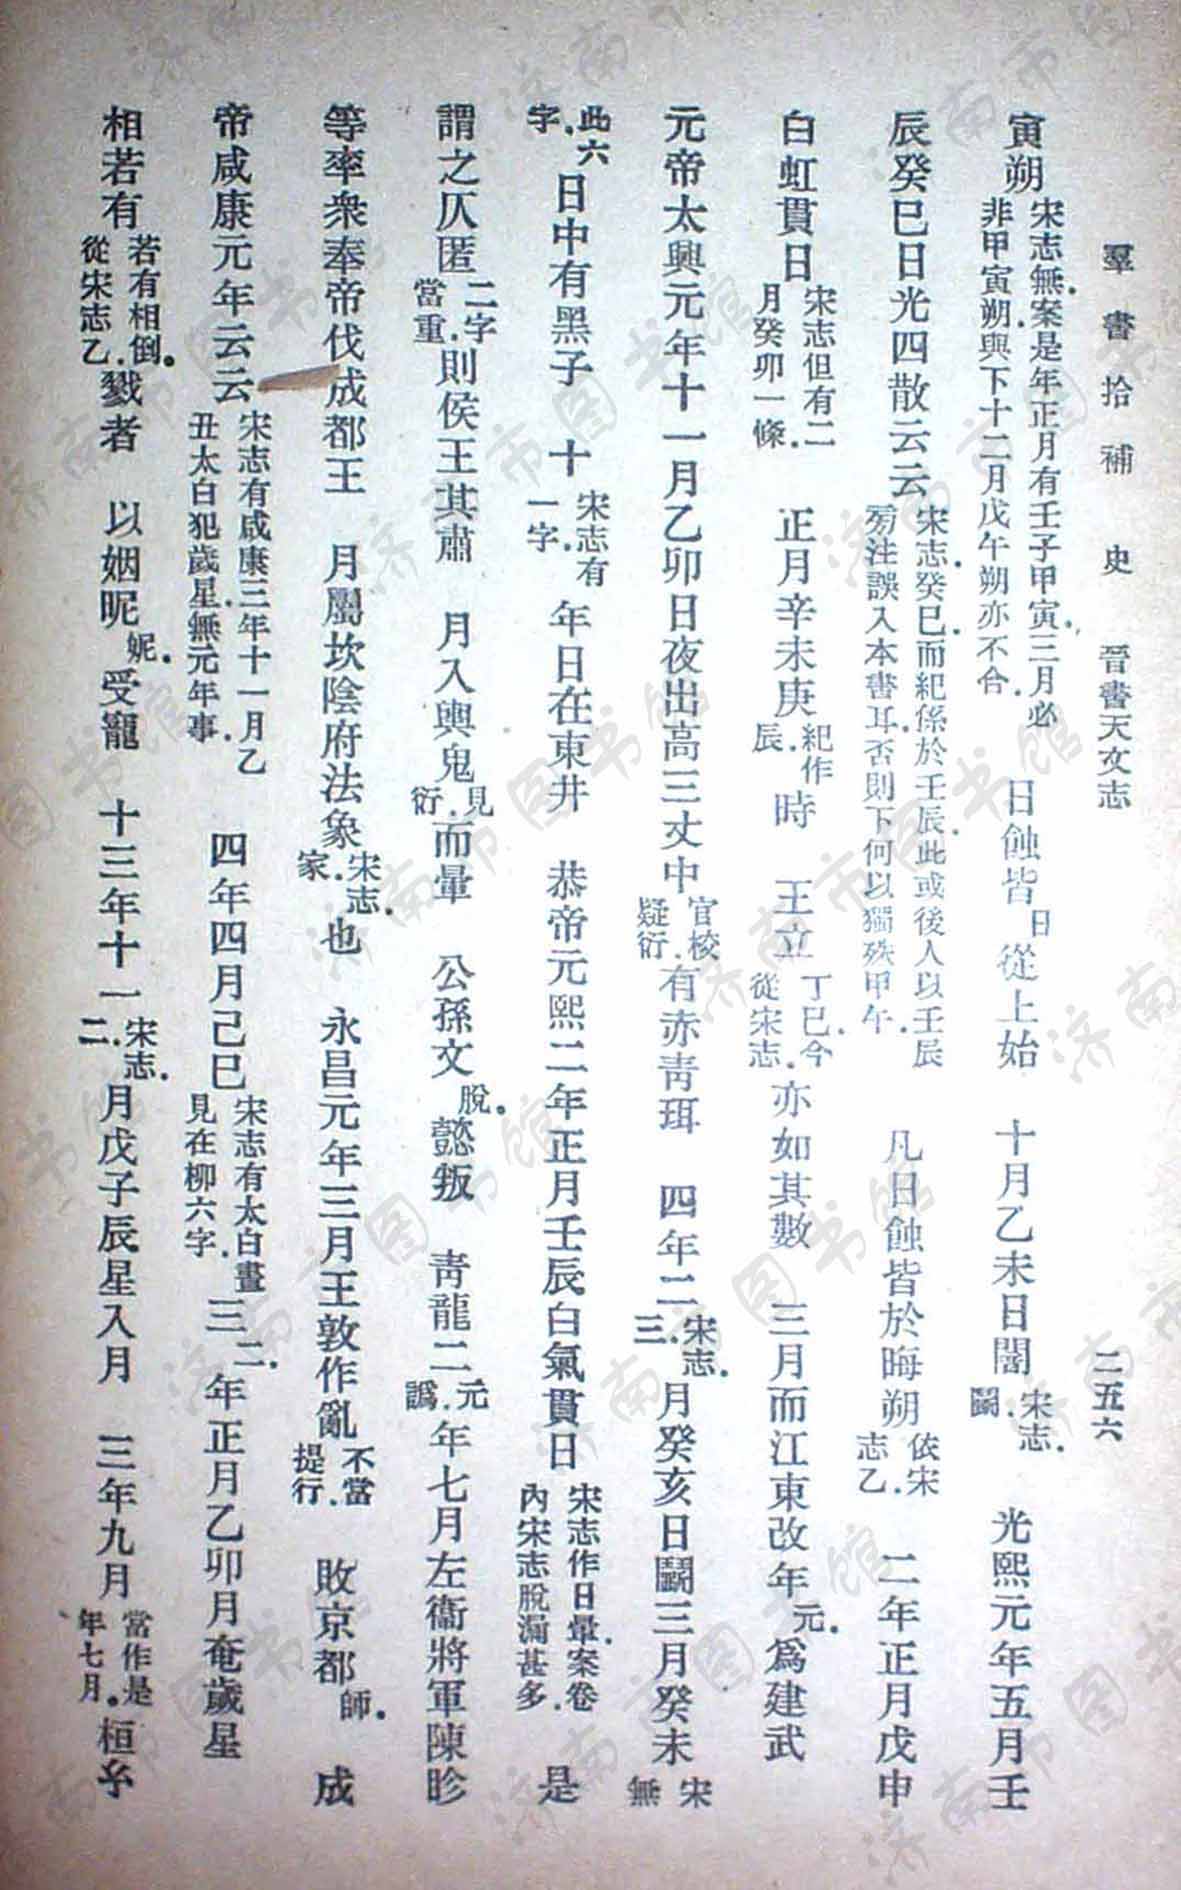 羣書拾補 史 晉書天文志 二五六
寅朔宋志無.案是年正月有壬子甲寅.三月必非甲寅朔.與下十二月戊午朔亦不合. 日蝕皆日從上始 十月乙未日闇宋志.鬭. 光熙元年五月壬
辰癸巳日光四散云云宋志.癸巳.而紀係於壬辰.此或後人以壬辰㫄注誤入本書耳.否則下何以獨殊甲午. 凡日蝕皆於晦朔依宋志乙. 二年正月戊申
白虹貫日宋志但有二月癸卯一條. 正月辛未庚紀作辰. 時 王立丁巳.今從宋志. 亦如其數 三月而江東改年元.爲建武
元帝太興元年十一月乙卯日夜出高三丈中官校疑衍.有赤靑珥 四年二宋志.三.月癸亥日鬭三月癸未宋無
此六字.日中有黑子 十宋志有一字. 年日在東井 恭帝元熙二年正月壬辰白氣貫日宋志作日暈.案卷內宋志脫漏甚多. 是
謂之仄匿二字當重.則侯王其肅 月入輿鬼見衍.而暈 公孫文脫.懿叛 靑龍二元譌.年七月左衞將軍陳眕
等率衆奉帝伐成都王 月屬坎陰府法象宋志.家.也 永昌元年三月王敦作亂不當提行. 敗京都師. 成
帝咸康元年云云宋志有咸康三年十一月乙丑太白犯歲星.無元年事. 四年四月己巳宋志有太白晝見在柳六字. 三二.年正月乙卯月奄歲星
相若有若有相倒.從宋志乙.戮者 以姻昵妮.受寵 十三年十一宋志.二.月戊子辰星入月 三年九月當作是年七月.桓系